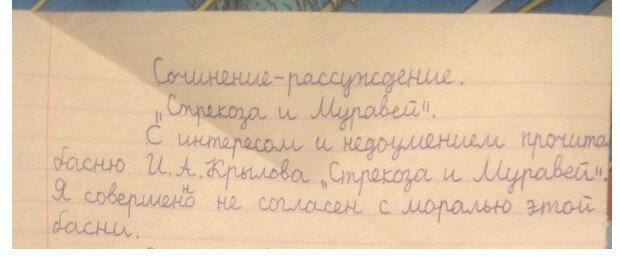 Сочинение-рассуждение.
„Стрекоза и Муравей".
С интересом и недоумением прочита
басню И.А.Крылова „Стрекоза и Муравей".
Я совершенно не согласен с моралью этой
басни.